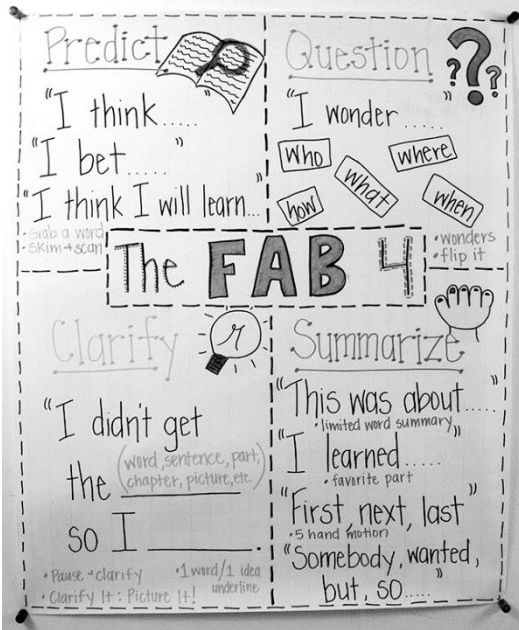 Predict
"I think....."
"I bet....."
"I think I will learn..."
• Grab a word
• skim + scan
Question
???
"I wonder.....
who
what
where
how
when
• wonders
• flip it
The FAB 4
Clarify
r
"I didn't get
the (word, sentence, part,
chapter, picture, etc.)
so I ________.
• Pause + clarify
• 1 word/1 idea
underline
• Clarify It: Picture It!
Summarize
"This was about....."
• limited word summary
"I learned....."
• favorite part
"First, next, last"
• 5 hand motion
"Somebody, wanted,
but, so....."